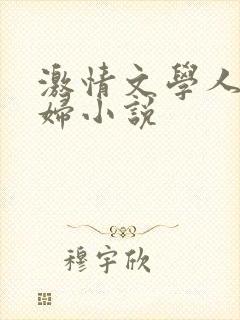 激情文學人
婦小說
穆宇欣